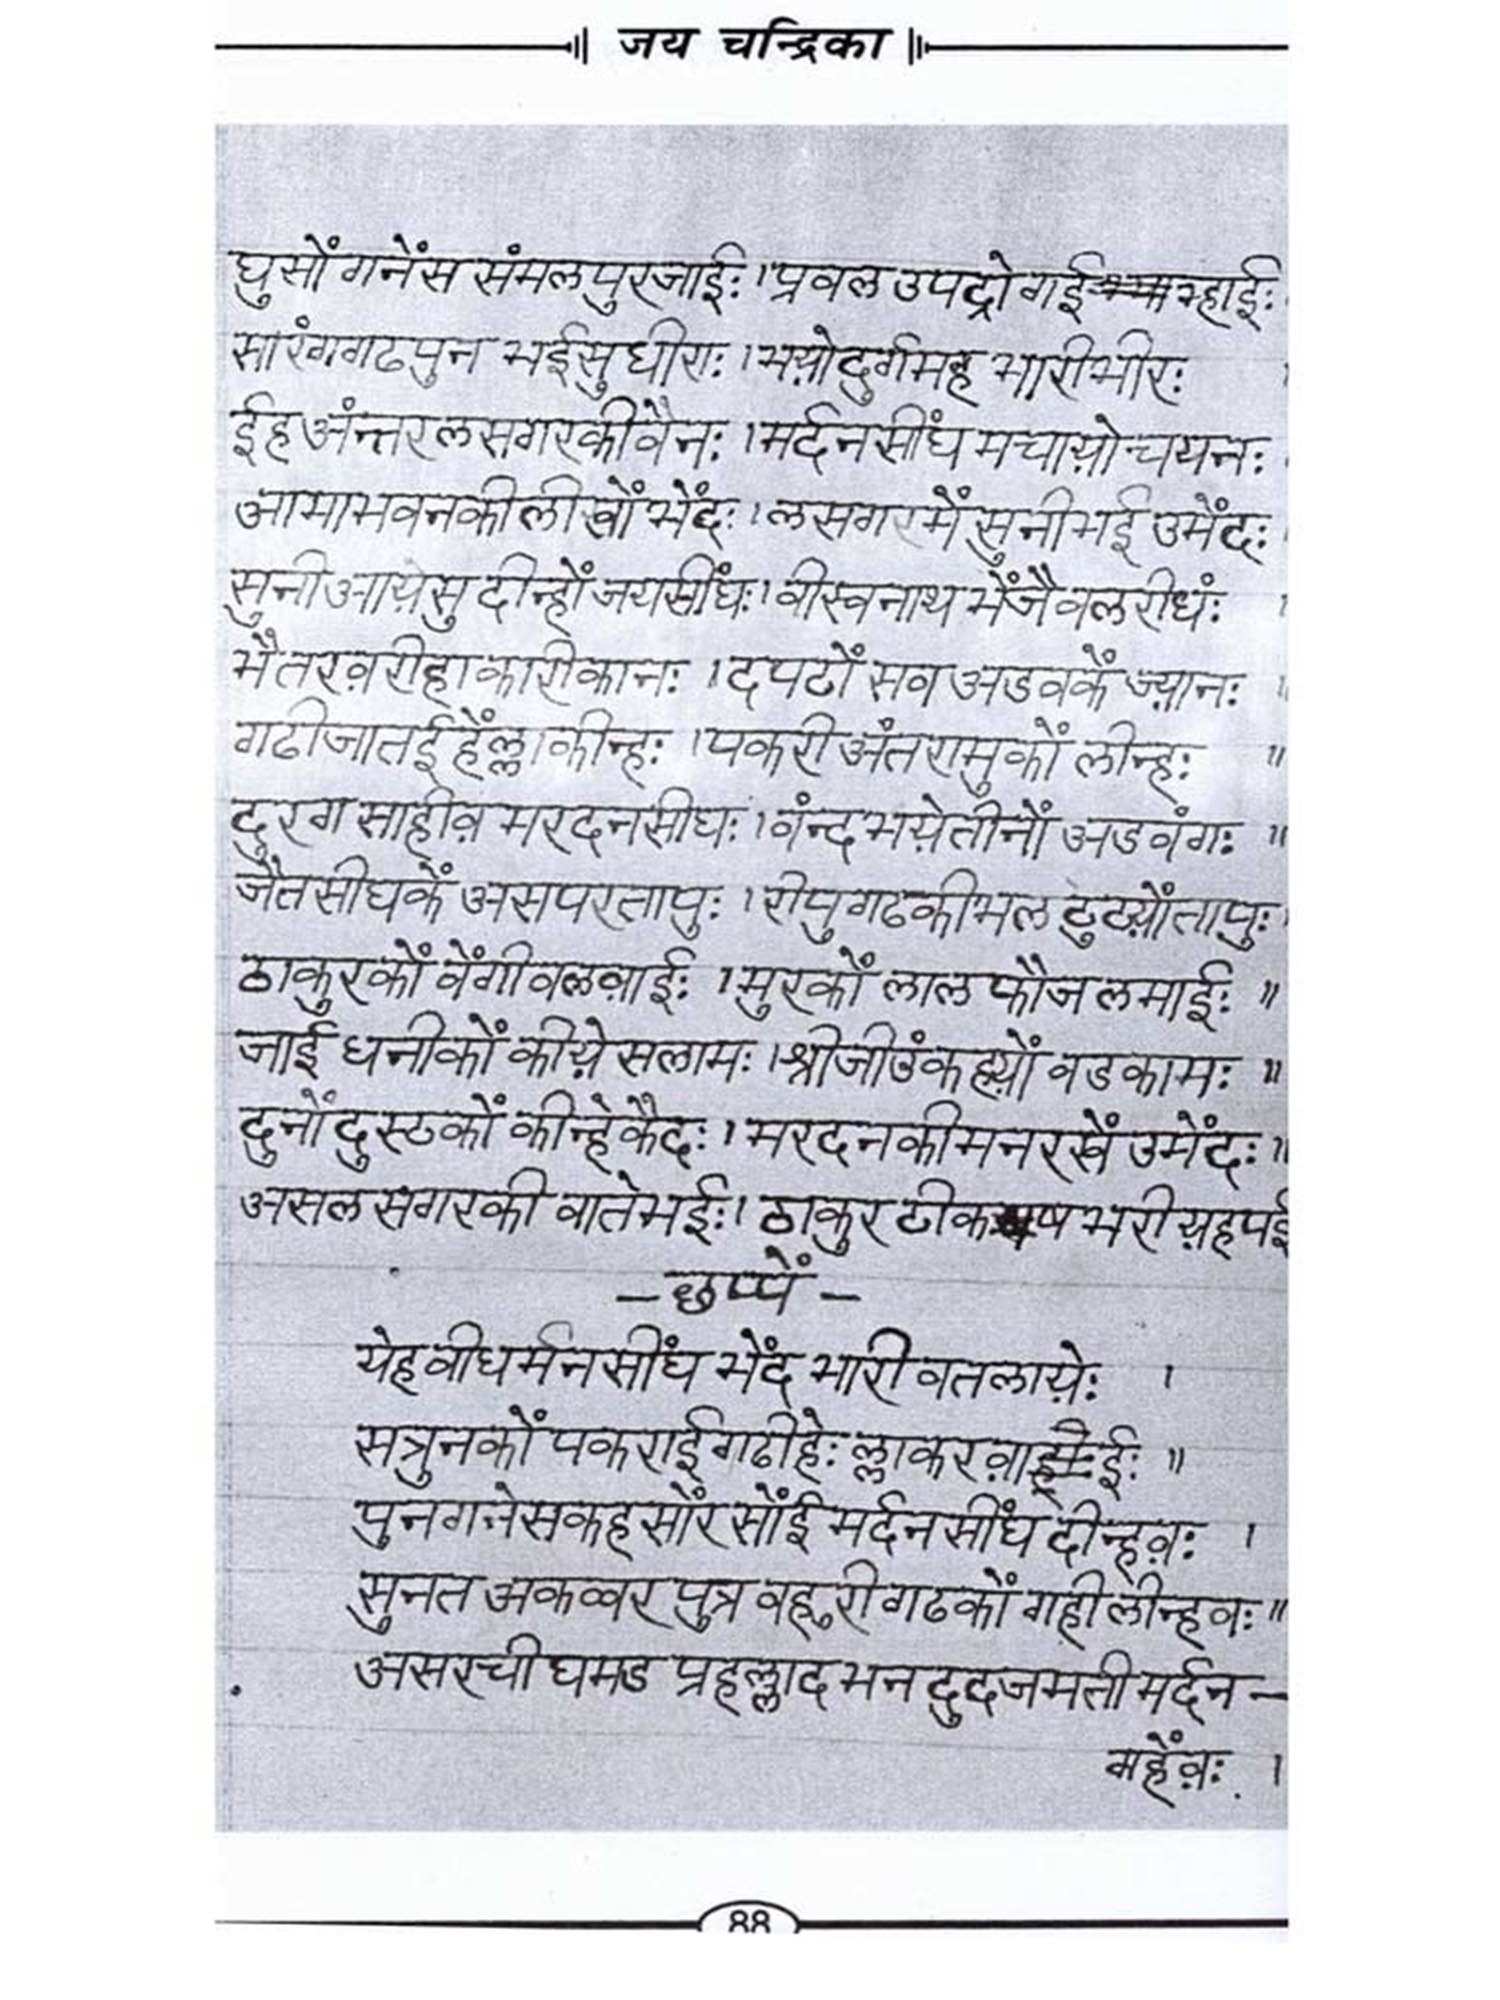 जय चन्द्रिका
घुसों गनेंस संमलपुरजाईः । प्रवल उपद्रो गई म्हाईः
सारंगगढपुन भई सुघीराः । भय़ोदुर्गमह भारीभीरः
ईह अंन्तरलसगरकीवैनः । मर्दनसींघ मचाय़ो चयनः
आमाभवनकीलीखों भेंदः । लसगरमें सुनीभई उमेंदः
सुनी आय़ेसु दीन्हों जयसींघः । वीस्वनाथ मेंजै वलरीधंः
भै तरव़रीहाकारीकानः । दपटों सव अडवकें ज्य़ानः
गढीजातई हेंल्लाकीन्हः । पकरी अंतरामुकों लीन्हः ॥
दुरग साहीव़ मरदनसीघः । वंन्दभय़ेतीनों अडवंगः ॥
जैतसीघकें असपरतापुः । रीपुगढकीभल टुटय़ोंतापुः
ठाकुरकों वेंगीवलव़ाईः । मुरकों लाल फौजलमाईः ॥
जाई धनीकों कीय़े सलामः । श्रीजीउंकह्य़ों वडकामः ॥
दुनों दुस्टकों कीन्हेकैदः । मरदनकीमनरखें उमेंदः ॥
असलसगरकी वातेभईः । ठाकुरटीकपष भरीय़हपई
– छप्पें –
येहवीधर्मनसींघ भेंद भारी वतलाय़ेः ।
सत्रुनकों पकराई गढीहेः ल्लाकरव़ाईः ॥
पुनगनेसकहसोंर सोंई मर्दनसींघदीन्हव़ः ।
सुनत अकव्वर पुत्र वहुरीगढकों गहीलीन्हवः ॥
असरचीघमड प्रहल्लादभन दुदजमती मर्दन –
महेंव़ः ।
88